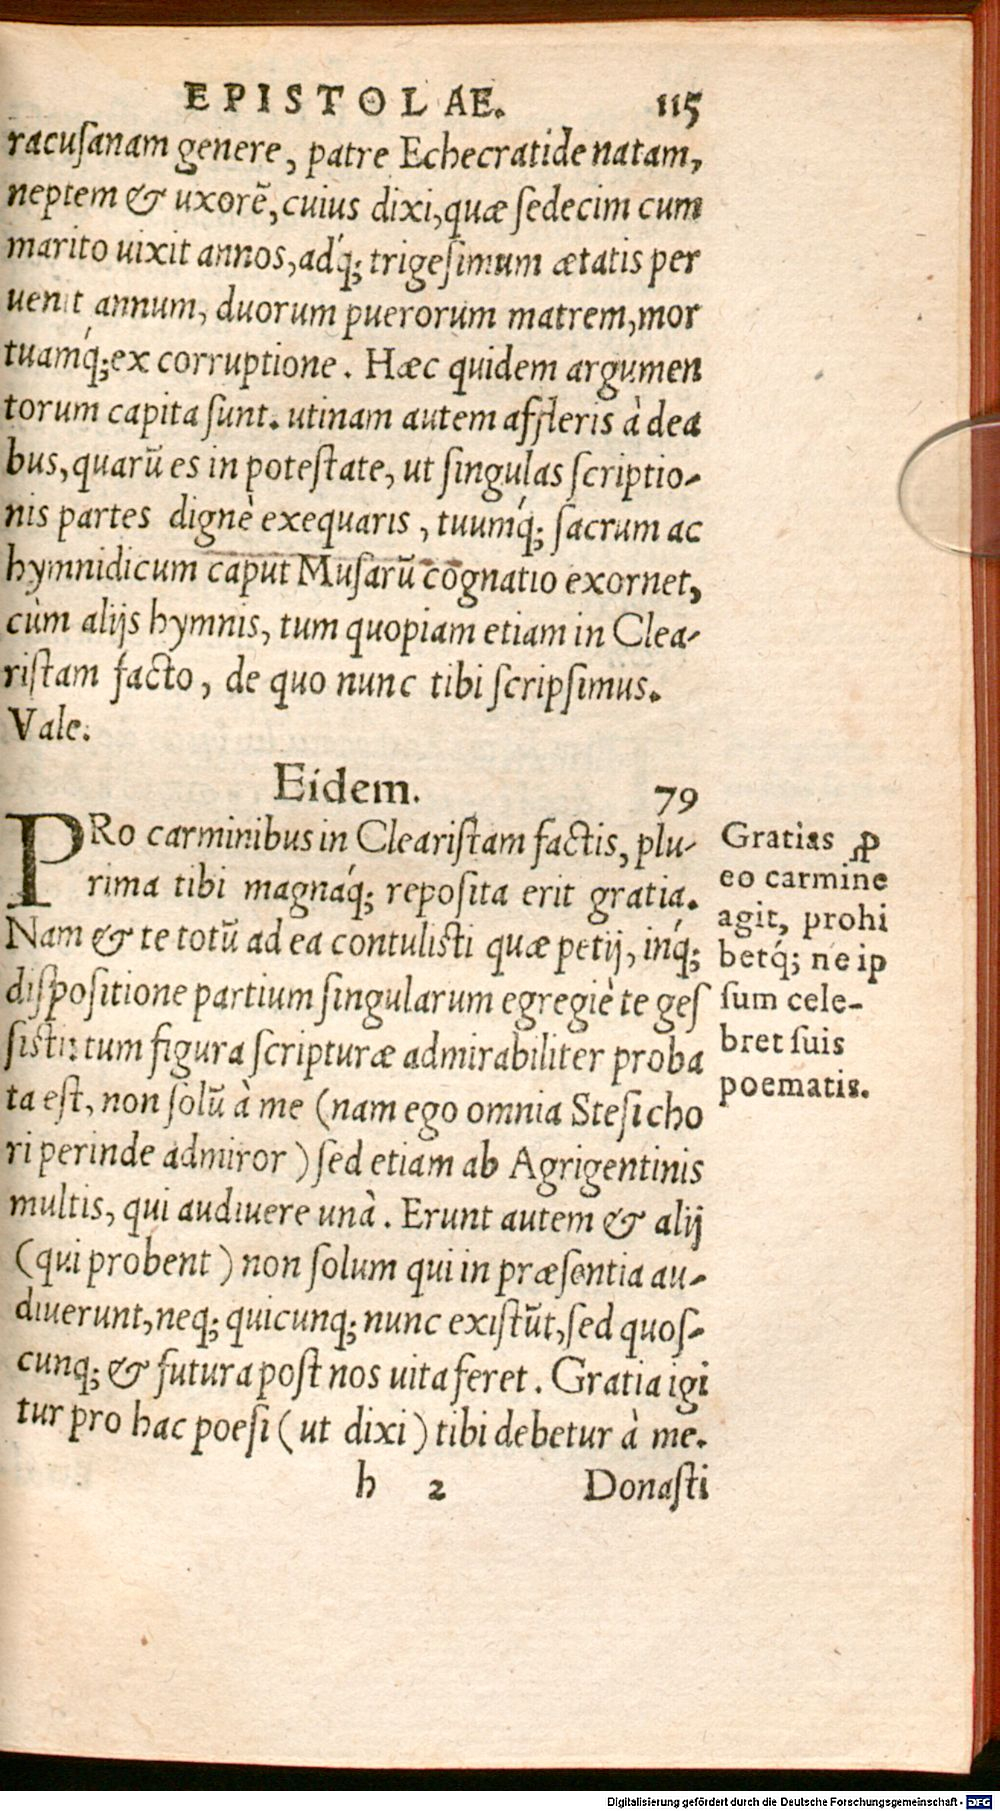 EPISTOLAE. 115
racuſanam genere, patre Echecratide natam,
neptem & uxorē, cuius dixi, quæ ſedecim cum
marito uixit annos, adq́; trigeſimum ætatis per
uenit annum, duorum puerorum matrem, mor
tuamq́; ex corruptione. Hæc quidem argumen
torum capita ſunt. utinam autem affleris à dea
bus, quarū es in poteſtate, ut ſingulas ſcriptio-
nis partes dignè exequaris, tuumq́; ſacrum ac
hymnidicum caput Muſarū cognatio exornet,
cùm alijs hymnis, tum quopiam etiam in Clea-
riſtam facto, de quo nunc tibi ſcripſimus.
Vale.
Eidem. 79
PRo carminibus in Cleariſtam factis, plu-
rima tibi magnaq́; repoſita erit gratia.
Nam & te totū ad ea contuliſti quæ petij, inq́;
diſpoſitione partium ſingularum egregiè te geſ
ſiſti: tum figura ſcripturæ admirabiliter proba
ta eſt, non ſolū à me (nam ego omnia Steſicho
ri perinde admiror) ſed etiam ab Agrigentinis
multis, qui audiuere unà. Erunt autem & alij
(qui probent) non ſolum qui in præſentia au-
diuerunt, neq; quicunq; nunc exiſtūt, ſed quoſ-
cunq; & futura poſt nos uita feret. Gratia igi
tur pro hac poeſi (ut dixi) tibi debetur à me.
h 2 Donaſti
Gratias ꝓ
eo carmine
agit, prohi
betq́; ne ip
ſum cele-
bret ſuis
poematis.
Digitalisierung gefördert durch die Deutsche Forschungsgemeinschaft - DFG